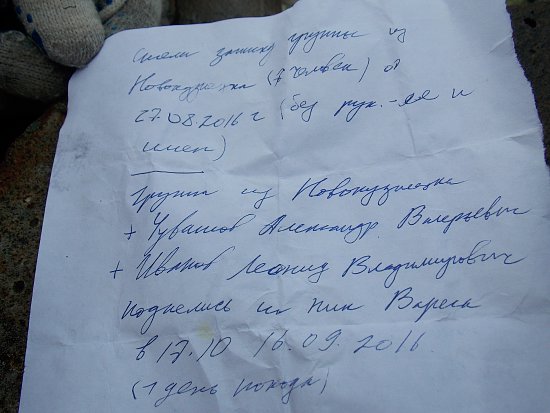 Сняли записку группы из
Новокузнецка (7 человек) от
27.08.2016 г (без рук.-ля и
имен)
Группа из Новокузнецка
+ Чувашов Александр Валерьевич
+ Иванов Леонид Владимирович
поднялись на пик
в 17.10 16.09.2016
(1 день похода)